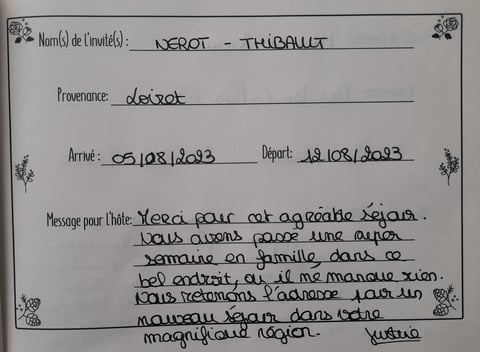 Nom(s) de l'invité(s) : NEROT - THIBAULT
Provenance: Loiret
Arrivé : 05/08/2023 Départ: 12/08/2023
Message pour l'hôte: Merci pour cet agréable séjour.
Nous avons passé une super
semaine en famille dans ce
bel endroit, où il ne manque rien.
Nous retenons l'adresse pour un
nouveau séjour dans votre
magnifique région. Justine